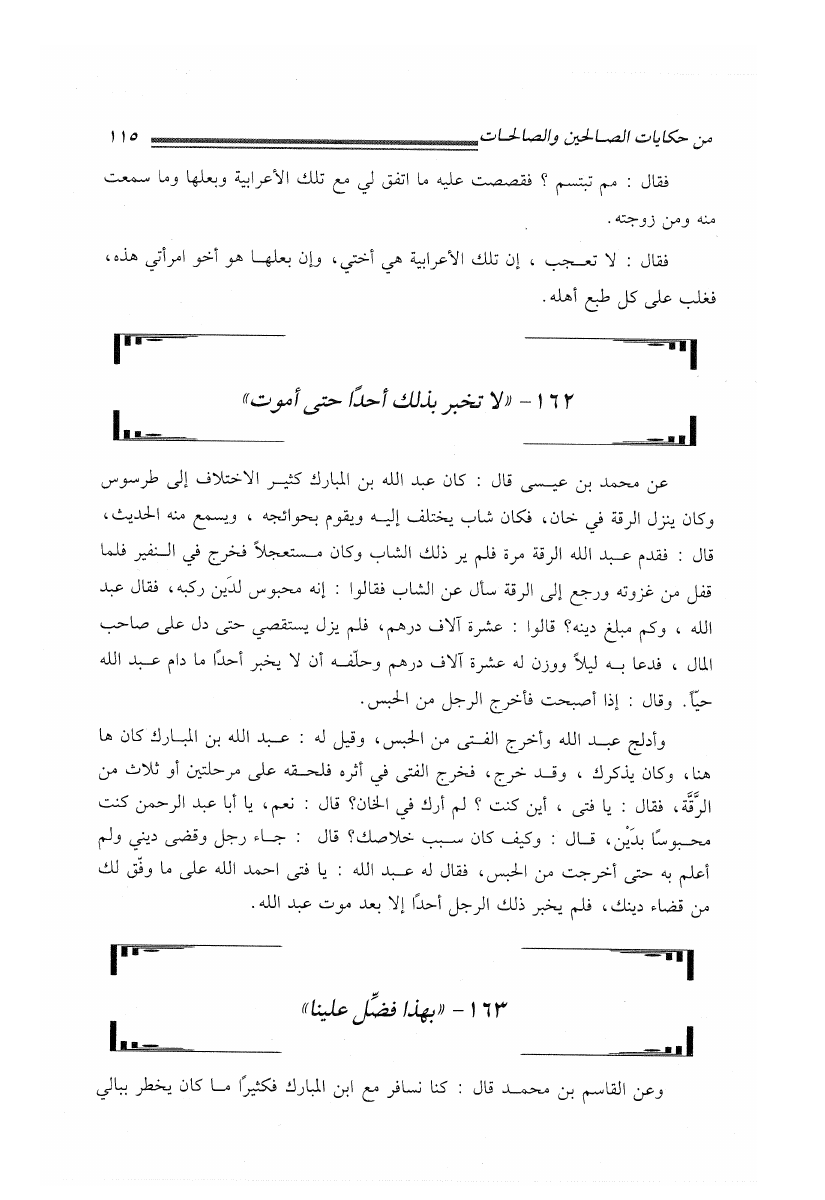 من حكايات الصالحين والصالحات ١١٥
فقال : مم تبتسم ؟ فقصصت عليه ما اتفق لي مع تلك الأعرابية وبعلها وما سمعت
منه ومن زوجته.
فقال : لا تعجب ، إن تلك الأعرابية هي أختي، وإن بعلها هو أخو امرأتي هذه،
فغلب على كل طبع أهله.
١٦٢- «لا تخبر بذلك أحدًا حتى أموت»
عن محمد بن عيسى قال : كان عبد الله بن المبارك كثير الاختلاف إلى طرسوس
وكان ينزل الرقة في خان، فكان شاب يختلف إليه ويقوم بحوائجه ، ويسمع منه الحديث،
قال : فقدم عبد الله الرقة مرة فلم ير ذلك الشاب وكان مستعجلاً فخرج في النفير فلما
قفل من غزوته ورجع إلى الرقة سأل عن الشاب فقالوا : إنه محبوس لدَين ركبه، فقال عبد
الله ، وكم مبلغ دينه؟ قالوا : عشرة آلاف درهم، فلم يزل يستقصي حتى دل على صاحب
المال ، فدعا به ليلاً ووزن له عشرة آلاف درهم وحلّفه أن لا يخبر أحدًا ما دام عبد الله
حيّاً. وقال : إذا أصبحت فأخرج الرجل من الحبس.
وأدلج عبد الله وأخرج الفتى من الحبس، وقيل له : عبد الله بن المبارك كان ها
هنا، وكان يذكرك ، وقد خرج، فخرج الفتى في أثره فلحقه على مرحلتين أو ثلاث من
الرَّقَّة، فقال : يا فتى ، أين كنت ؟ لم أرك في الخان؟ قال : نعم، يا أبا عبد الرحمن كنت
محبوسًا بدَيْن، قال : وكيف كان سبب خلاصك؟ قال : جاء رجل وقضى ديني ولم
أعلم به حتى أخرجت من الحبس، فقال له عبد الله : يا فتى احمد الله على ما وفّق لك
من قضاء دينك، فلم يخبر ذلك الرجل أحدًا إلا بعد موت عبد الله.
١٦٣- «بهذا فضِّل علينا»
وعن القاسم بن محمد قال : كنا نسافر مع ابن المبارك فكثيرًا ما كان يخطر ببالي